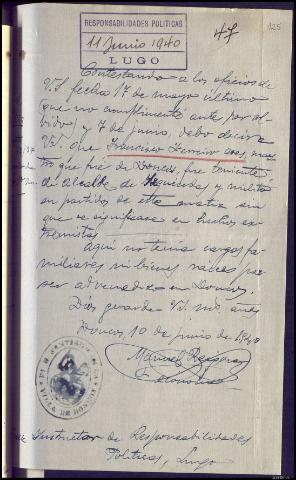 125
RESPONSABILIDADES POLITICAS
11 Junio 1940
LUGO
47
Contestando a los oficios de
V.S. fecha 17 de mayo último
que no cumplimenté antes por ol-
vido, y 7 de junio, debo decir a
V.S. que Francisco Ferreiro maes
tro que fué de Doncos, fue teniente
de alcalde de Izquierdas y militó
en partidos de este matiz sin
que se significase en hechos ex-
tremistas.
Aquí no tenía cargas fa-
miliares ni bienes raices por
ser advenedizo en Doncos.
Dios guarde V.S. ms. años
Doncos, 10 de junio de 1940
Manuel
Ecónomo
Instructor de Responsabilidades
Políticas, Lugo